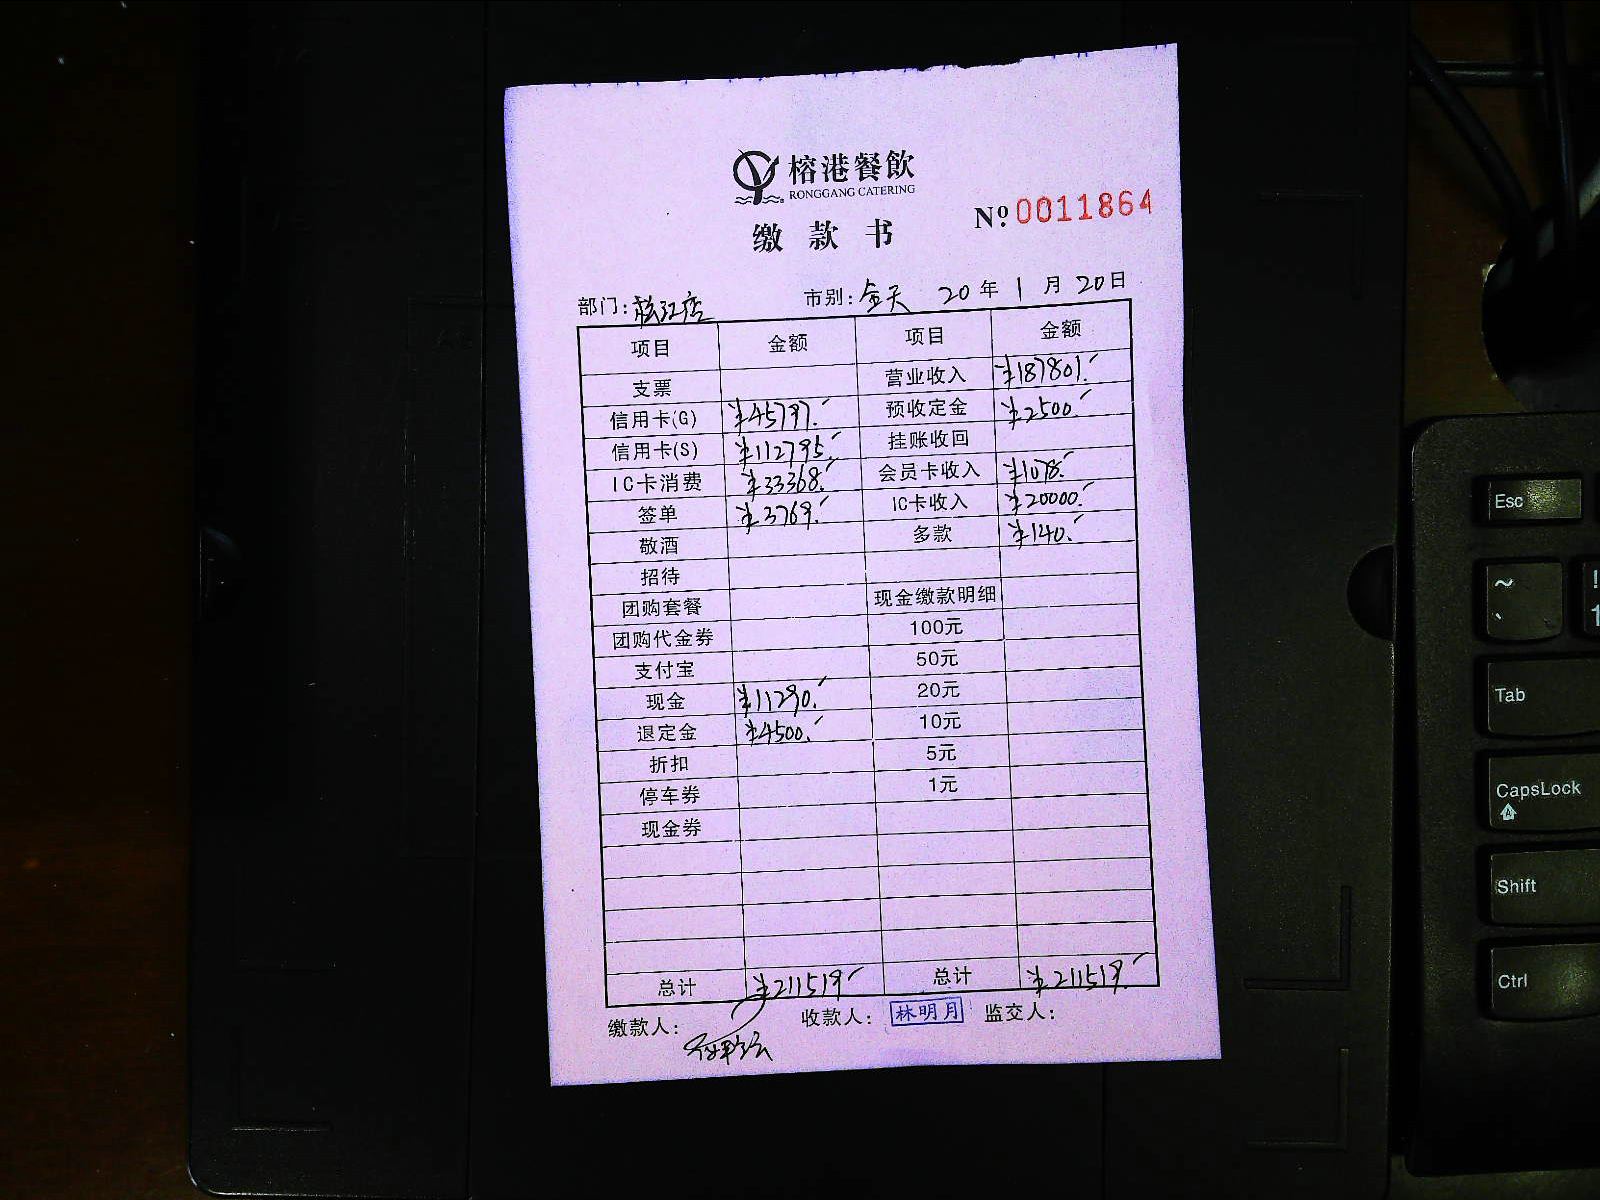 榕港餐飲
RONGGANG CATERING
缴款书
№ 0011864
部门: 松江店 市别: 全天 20年1月20日
项目 金额 项目 金额
支票 营业收入 ¥187801.
信用卡(G) ¥45797. 预收定金 ¥2500.
信用卡(S) ¥112795. 挂账收回
IC卡消费 ¥33368. 会员卡收入 ¥1078.
签单 ¥3769. IC卡收入 ¥20000.
敬酒 多款 ¥140.
招待
团购套餐 现金缴款明细
团购代金券 100元
支付宝 50元
现金 ¥11290. 20元
退定金 ¥4500. 10元
折扣 5元
停车券 1元
现金券
总计 ¥211519 总计 ¥211519.
缴款人: 收款人: 林明月 监交人:
Esc
~
`
!
1
Tab
CapsLock
Shift
Ctrl